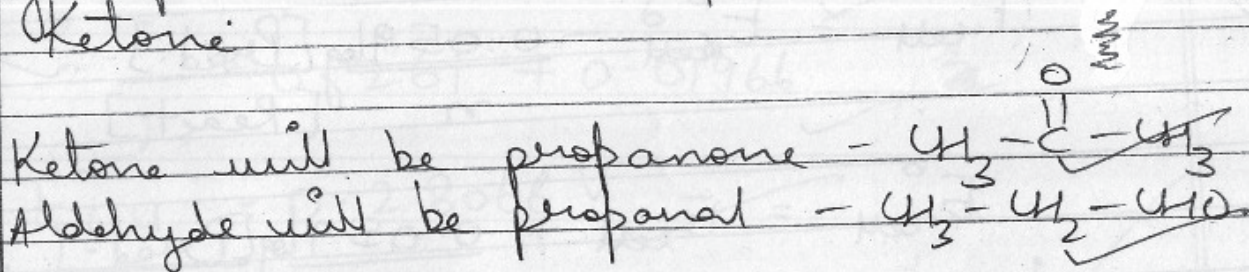 Ketone
O
||
Ketone will be propanone - CH3 - C - CH3
Aldehyde will be propanal - CH3 - CH2 - CHO